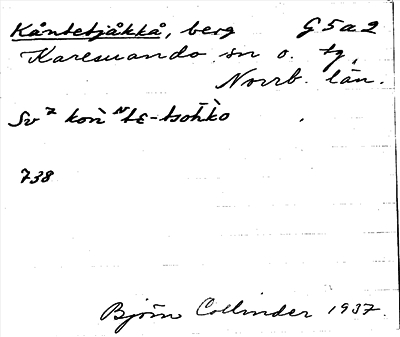 Kåntetjåkkå, berg G 5 a 2
Karesuando sn o. tg,
Norrb. län.
Sv 7 kon̄ ᴺtɛ-tsōhko
738
Björn Collinder 1937.